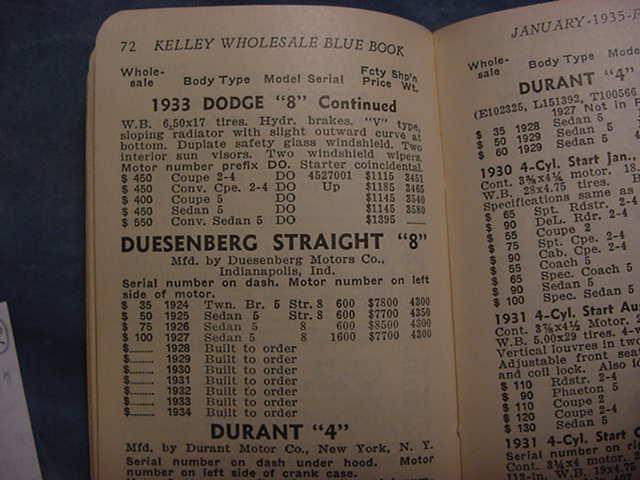 72 KELLEY WHOLESALE BLUE BOOK
Whole-sale Body Type Model Serial Fcty Price Shp'n Wt.
1933 DODGE "8" Continued
W.B. 6.50x17 tires. Hydr. brakes. "V" type,
sloping radiator with slight outward curve at
bottom. Duplate safety glass windshield. Two
interior sun visors. Two windshield wipers.
Motor number prefix DO. Starter coincidental.
$ 450 Coupe 2-4 DO 4527001 $1115 3451
$ 450 Conv. Cpe. 2-4 DO Up $1185 3465
$ 400 Coupe 5 DO $1145 3540
$ 450 Sedan 5 DO $1145 3580
$ 550 Conv. Sedan 5 DO $1395 ......
DUESENBERG STRAIGHT "8"
Mfd. by Duesenberg Motors Co.,
Indianapolis, Ind.
Serial number on dash. Motor number on left
side of motor.
$ 35 1924 Twn. Br. 5 Str. 8 600 $7800 4300
$ 50 1925 Sedan 5 Str. 8 600 $7700 4350
$ 75 1926 Sedan 5 8 600 $8500 4300
$ 100 1927 Sedan 5 8 1600 $7700 4300
$........ 1928 Built to order
$........ 1929 Built to order
$........ 1930 Built to order
$........ 1931 Built to order
$........ 1932 Built to order
$........ 1933 Built to order
$........ 1934 Built to order
DURANT "4"
Mfd. by Durant Motor Co., New York, N. Y.
Serial number on dash under hood. Motor
number on left side of crank case.
JANUARY-1935-F
Whole-sale Body Type Mode
DURANT "4"
(E102325, L151392, T100566
1927 Not in
$ 35 1928 Sedan 5
$ 50 1929 Sedan 5
$ 60 1929 Sedan 5
1930 4-Cyl. Start Jan.
Cont. 3⅞x4¼ motor. 18.
W.B. 28x4.75 tires.
Specifications same as
$ 65 Spt. Rdstr. 2-4
$ 90 DeL. Rdr. 2-4
$ 55 Coupe 2
$ 75 Spt. Cpe. 2-4
$ 90 Cab. Cpe. 2-4
$ 55 Coach 5
$ 65 Spec. Coach 5
$ 90 Sedan 5
$ 100 Spec. Sedan 5
1931 4-Cyl. Start Au
Cont. 3⅞x4½ Motor.
W.B. 5.00x29 tires. 4-
Vertical louvres in two
Adjustable front sea
and coil lock. Also
$ 110 Rdstr. 2-4
$ 90 Phaeton 5
$ 110 Coupe 2
$ 120 Coupe 2-4
$ 130 Sedan 5
1931 4-Cyl. Start
Cont.
112-in. W.B. 19x4.75